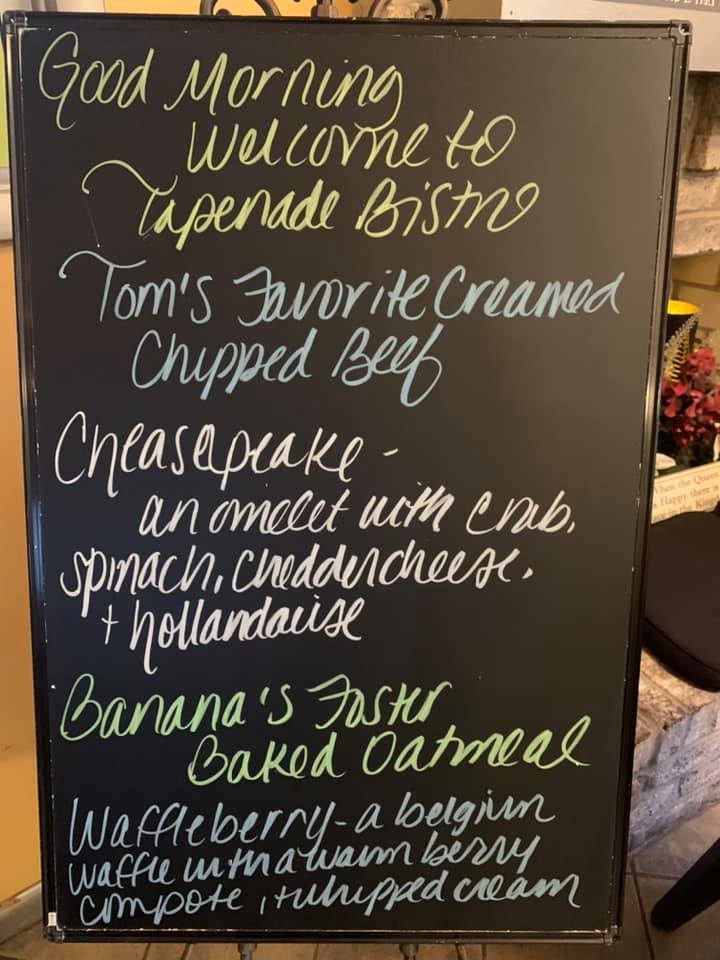 Good Morning
Welcome to
Tapenade Bistro
Tom's Favorite Creamed
Chipped Beef
Cheasapeake -
an omelet with crab,
spinach, chedder cheese,
+ hollandaise
Banana's Foster
Baked Oatmeal
Waffleberry - a belgium
waffle with a warm berry
compote, + whipped cream
When the Queen
is Happy there is
in the King